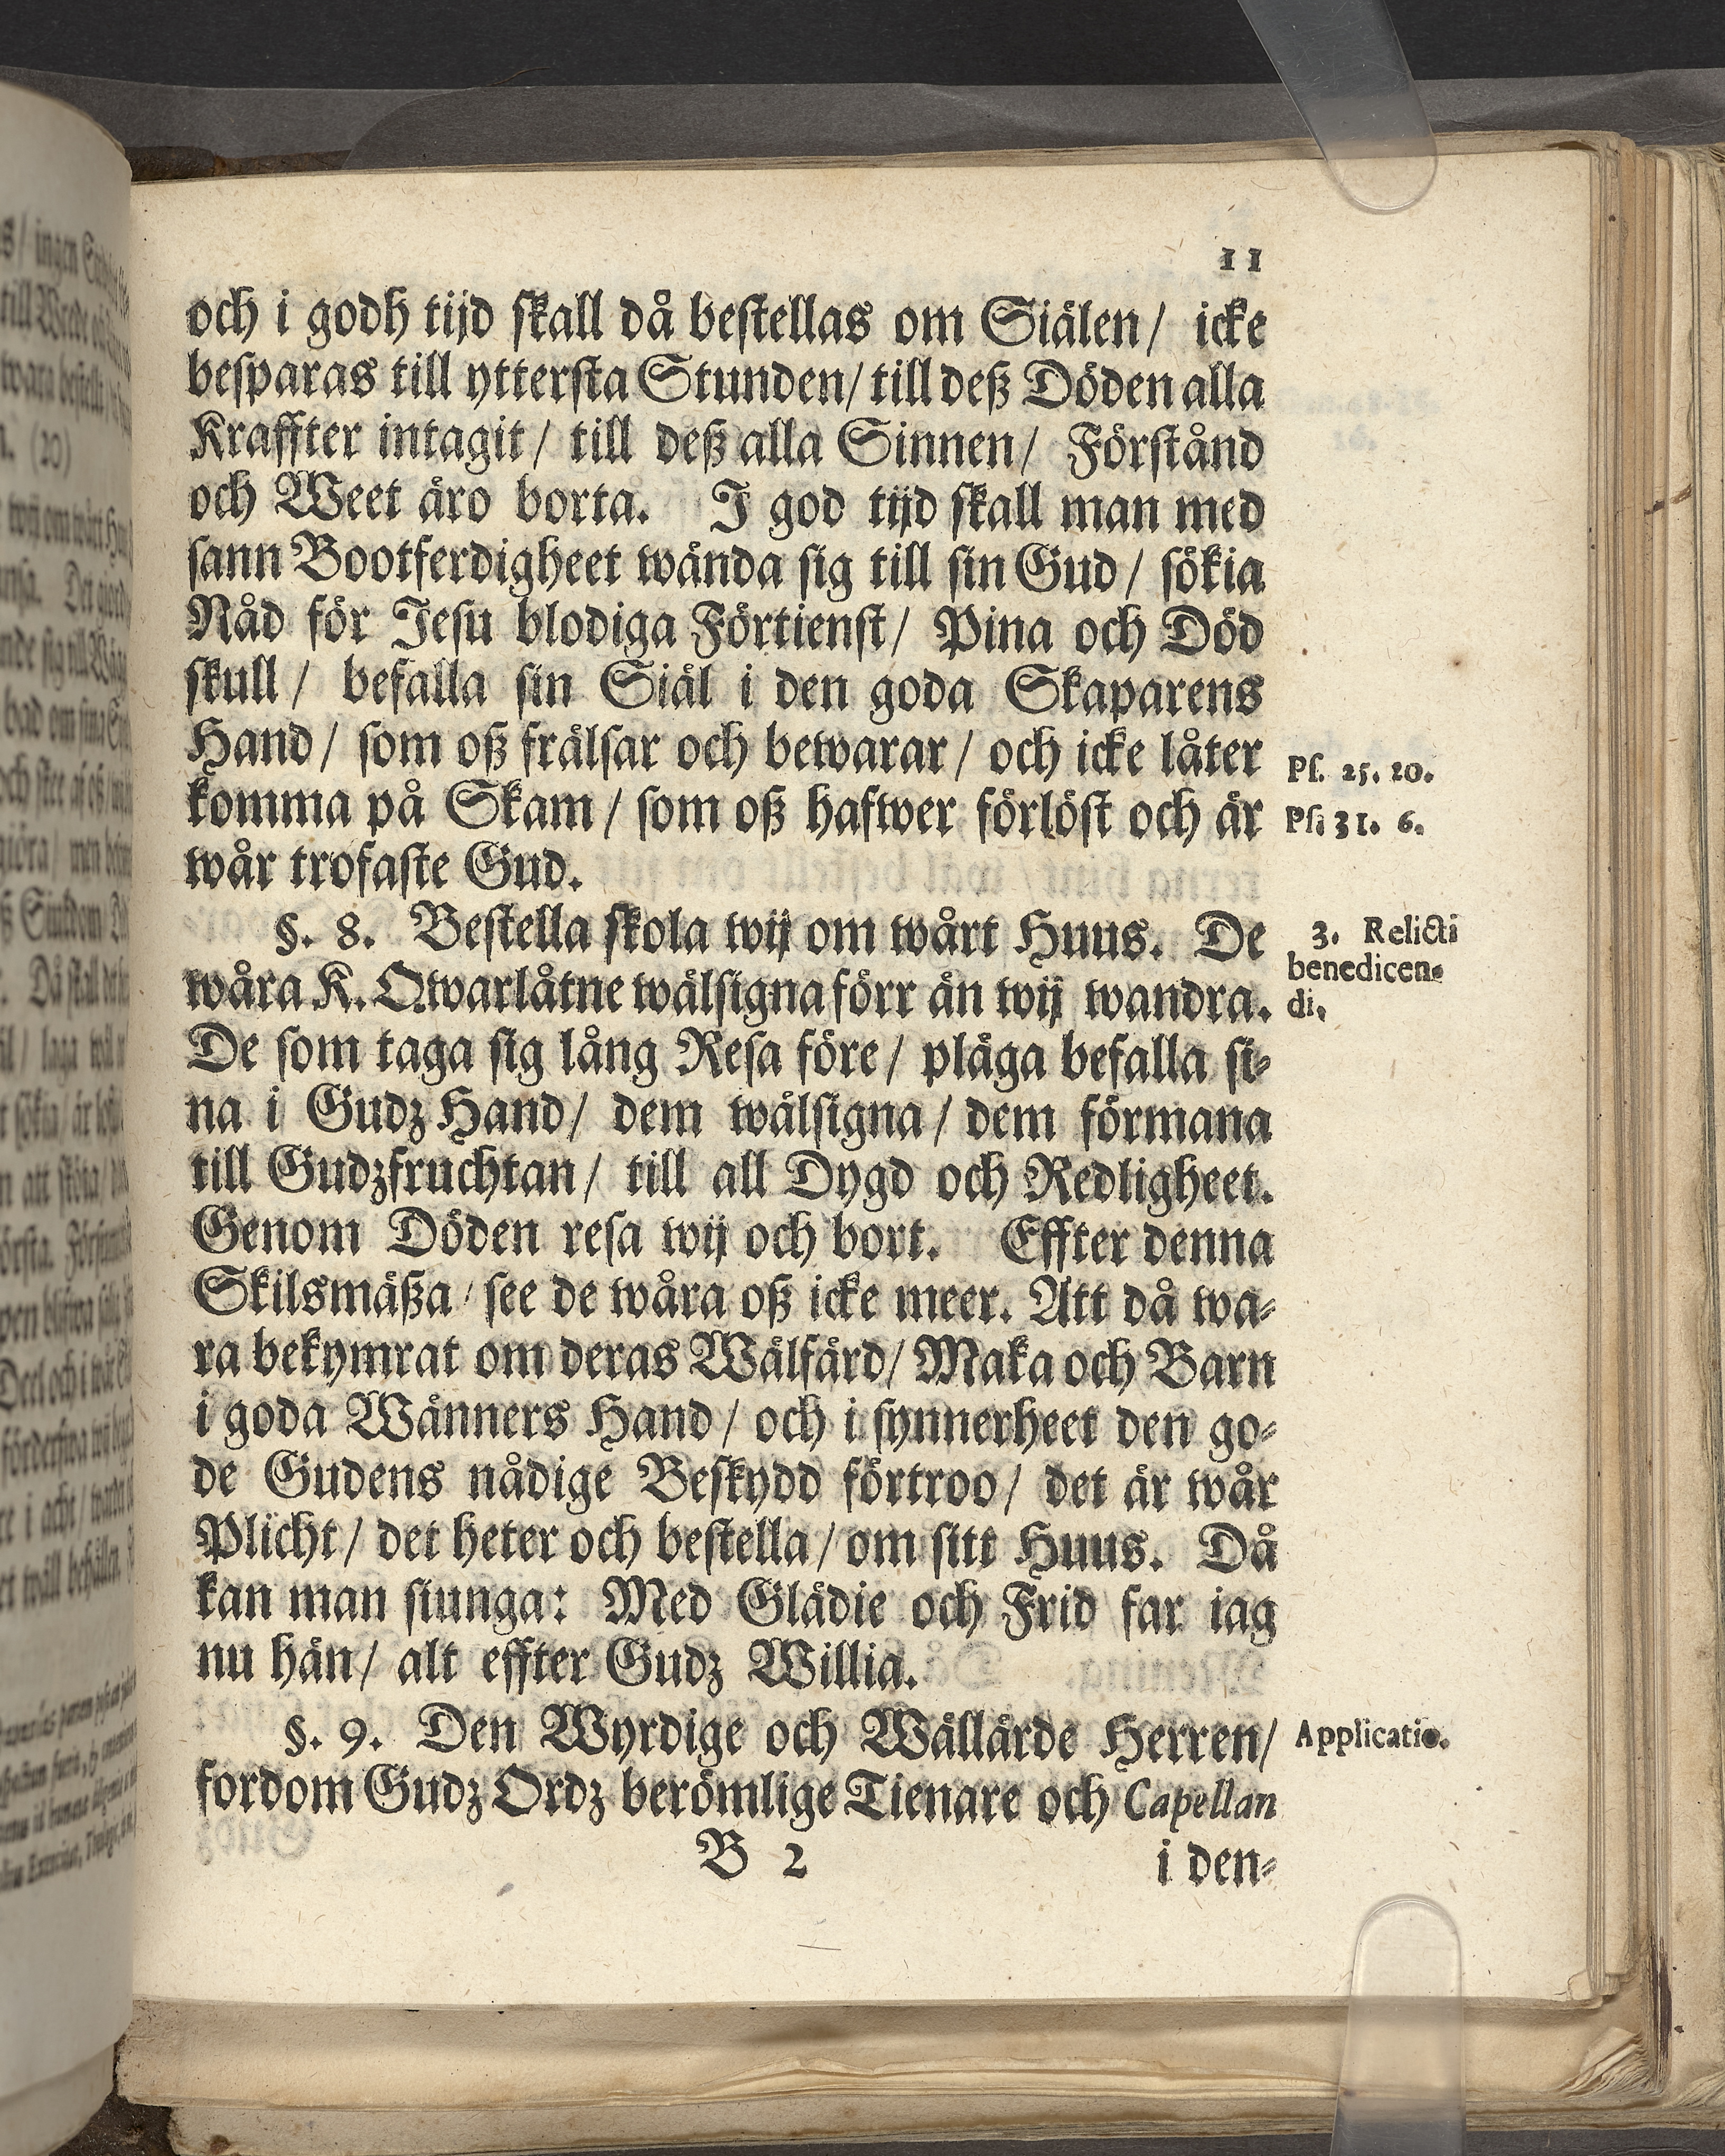 11
och i godh tijd skall då bestellas om Siälen/ icke
besparas till yttersta Stunden/ till deß Döden alla
Kraffter intagit/ till deß alla Sinnen/ Förstånd
och Weet äro borta. I god tijd skall man med
sann Bootferdigheet wända sig till sin Gud/ sökia
Nåd för Jesu blodiga Förtienst/ Pina och Död
skull/ befalla sin Siäl i den goda Skaparens
Hand/ som oß frälsar och bewarar/ och icke låter
Ps. 25. 20.
komma på Skam/ som oß hafwer förlöst och är
Ps. 31. 6.
wår trofaste Gud.
§. 8. Bestella skola wij om wårt Huus. De
3. Relicti
wåra K. Qwarlåtne wälsigna förr än wij wandra.
benedicen-
di.
De som taga sig lång Resa före/ pläga befalla si-
na i Gudz Hand/ dem wälsigna/ dem förmana
till Gudzfruchtan/ till all Dygd och Redligheet.
Genom Döden resa wij och bort. Effter denna
Skilsmäßa/ see de wåra oß icke meer. Att då wa-
ra bekymrat om deras Wälfärd/ Maka och Barn
i goda Wänners Hand/ och i synnerheet den go-
de Gudens nådige Beskydd förtroo/ det är wår
Plicht/ det heter och bestella/ om sitt Huus. Då
kan man siunga: Med Glädie och Frid far iag
nu hän/ alt effter Gudz Willia.
§. 9. Den Wyrdige och Wällärde Herren/
Applicatio.
fordom Gudz Ordz berömlige Tienare och Capellan
B 2
i den-